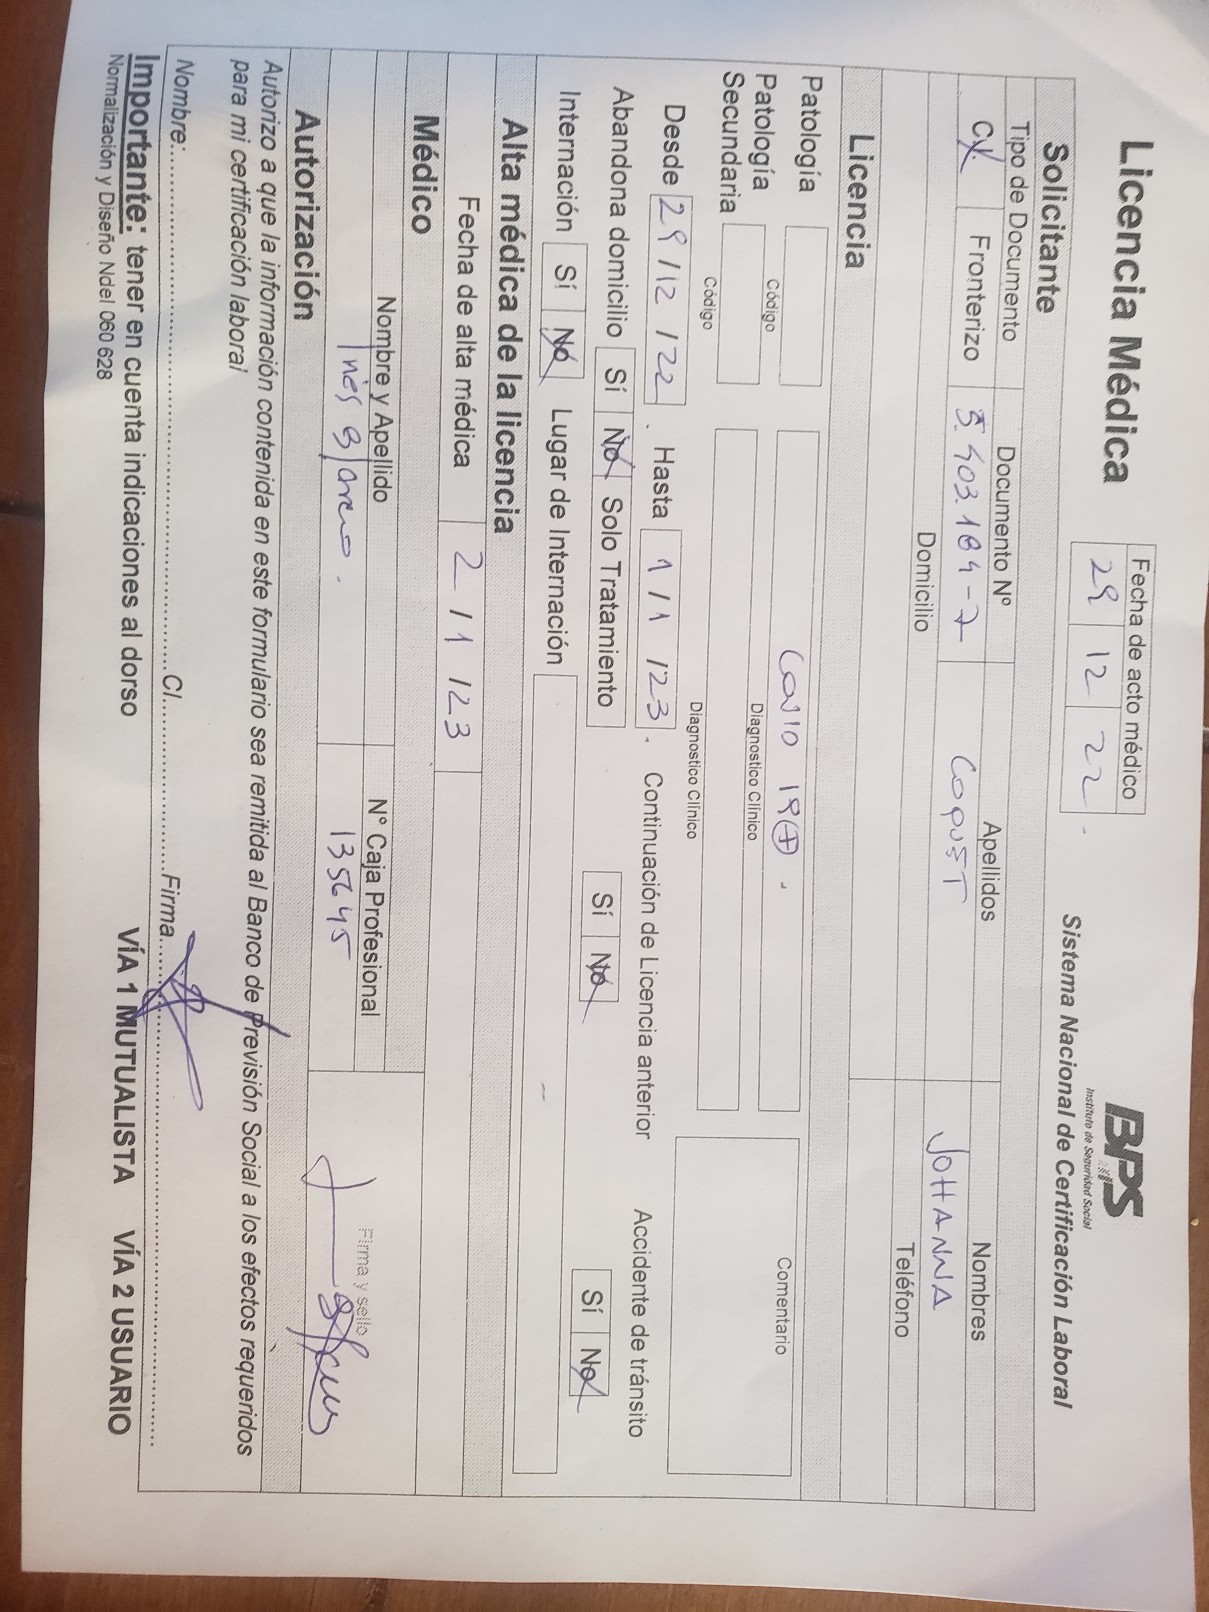 Licencia Médica
Fecha de acto médico
29 12 22
BPS
Instituto de Seguridad Social
Sistema Nacional de Certificación Laboral
Solicitante
Tipo de Documento Documento Nº Apellidos Nombres
CI Fronterizo 5.403.184-7 COQUET JOHANNA
Domicilio Teléfono
Licencia
Patología COVID 19 (+).
Código Diagnostico Clínico Comentario
Patología Secundaria
Código Diagnostico Clínico
Desde 29 / 12 / 22. Hasta 1 / 1 / 23. Continuación de Licencia anterior Accidente de tránsito
Abandona domicilio Sí No Solo Tratamiento Sí No Sí No
Internación Sí No Lugar de Internación
Alta médica de la licencia
Fecha de alta médica 2 / 1 / 23
Médico
Nombre y Apellido Nº Caja Profesional Firma y sello
Inés 135645
Autorización
Autorizo a que la información contenida en este formulario sea remitida al Banco de Previsión Social a los efectos requeridos
para mi certificación laboral
Nombre: CI. Firma
Importante: tener en cuenta indicaciones al dorso VÍA 1 MUTUALISTA VÍA 2 USUARIO
Normalización y Diseño Ndel 060 628